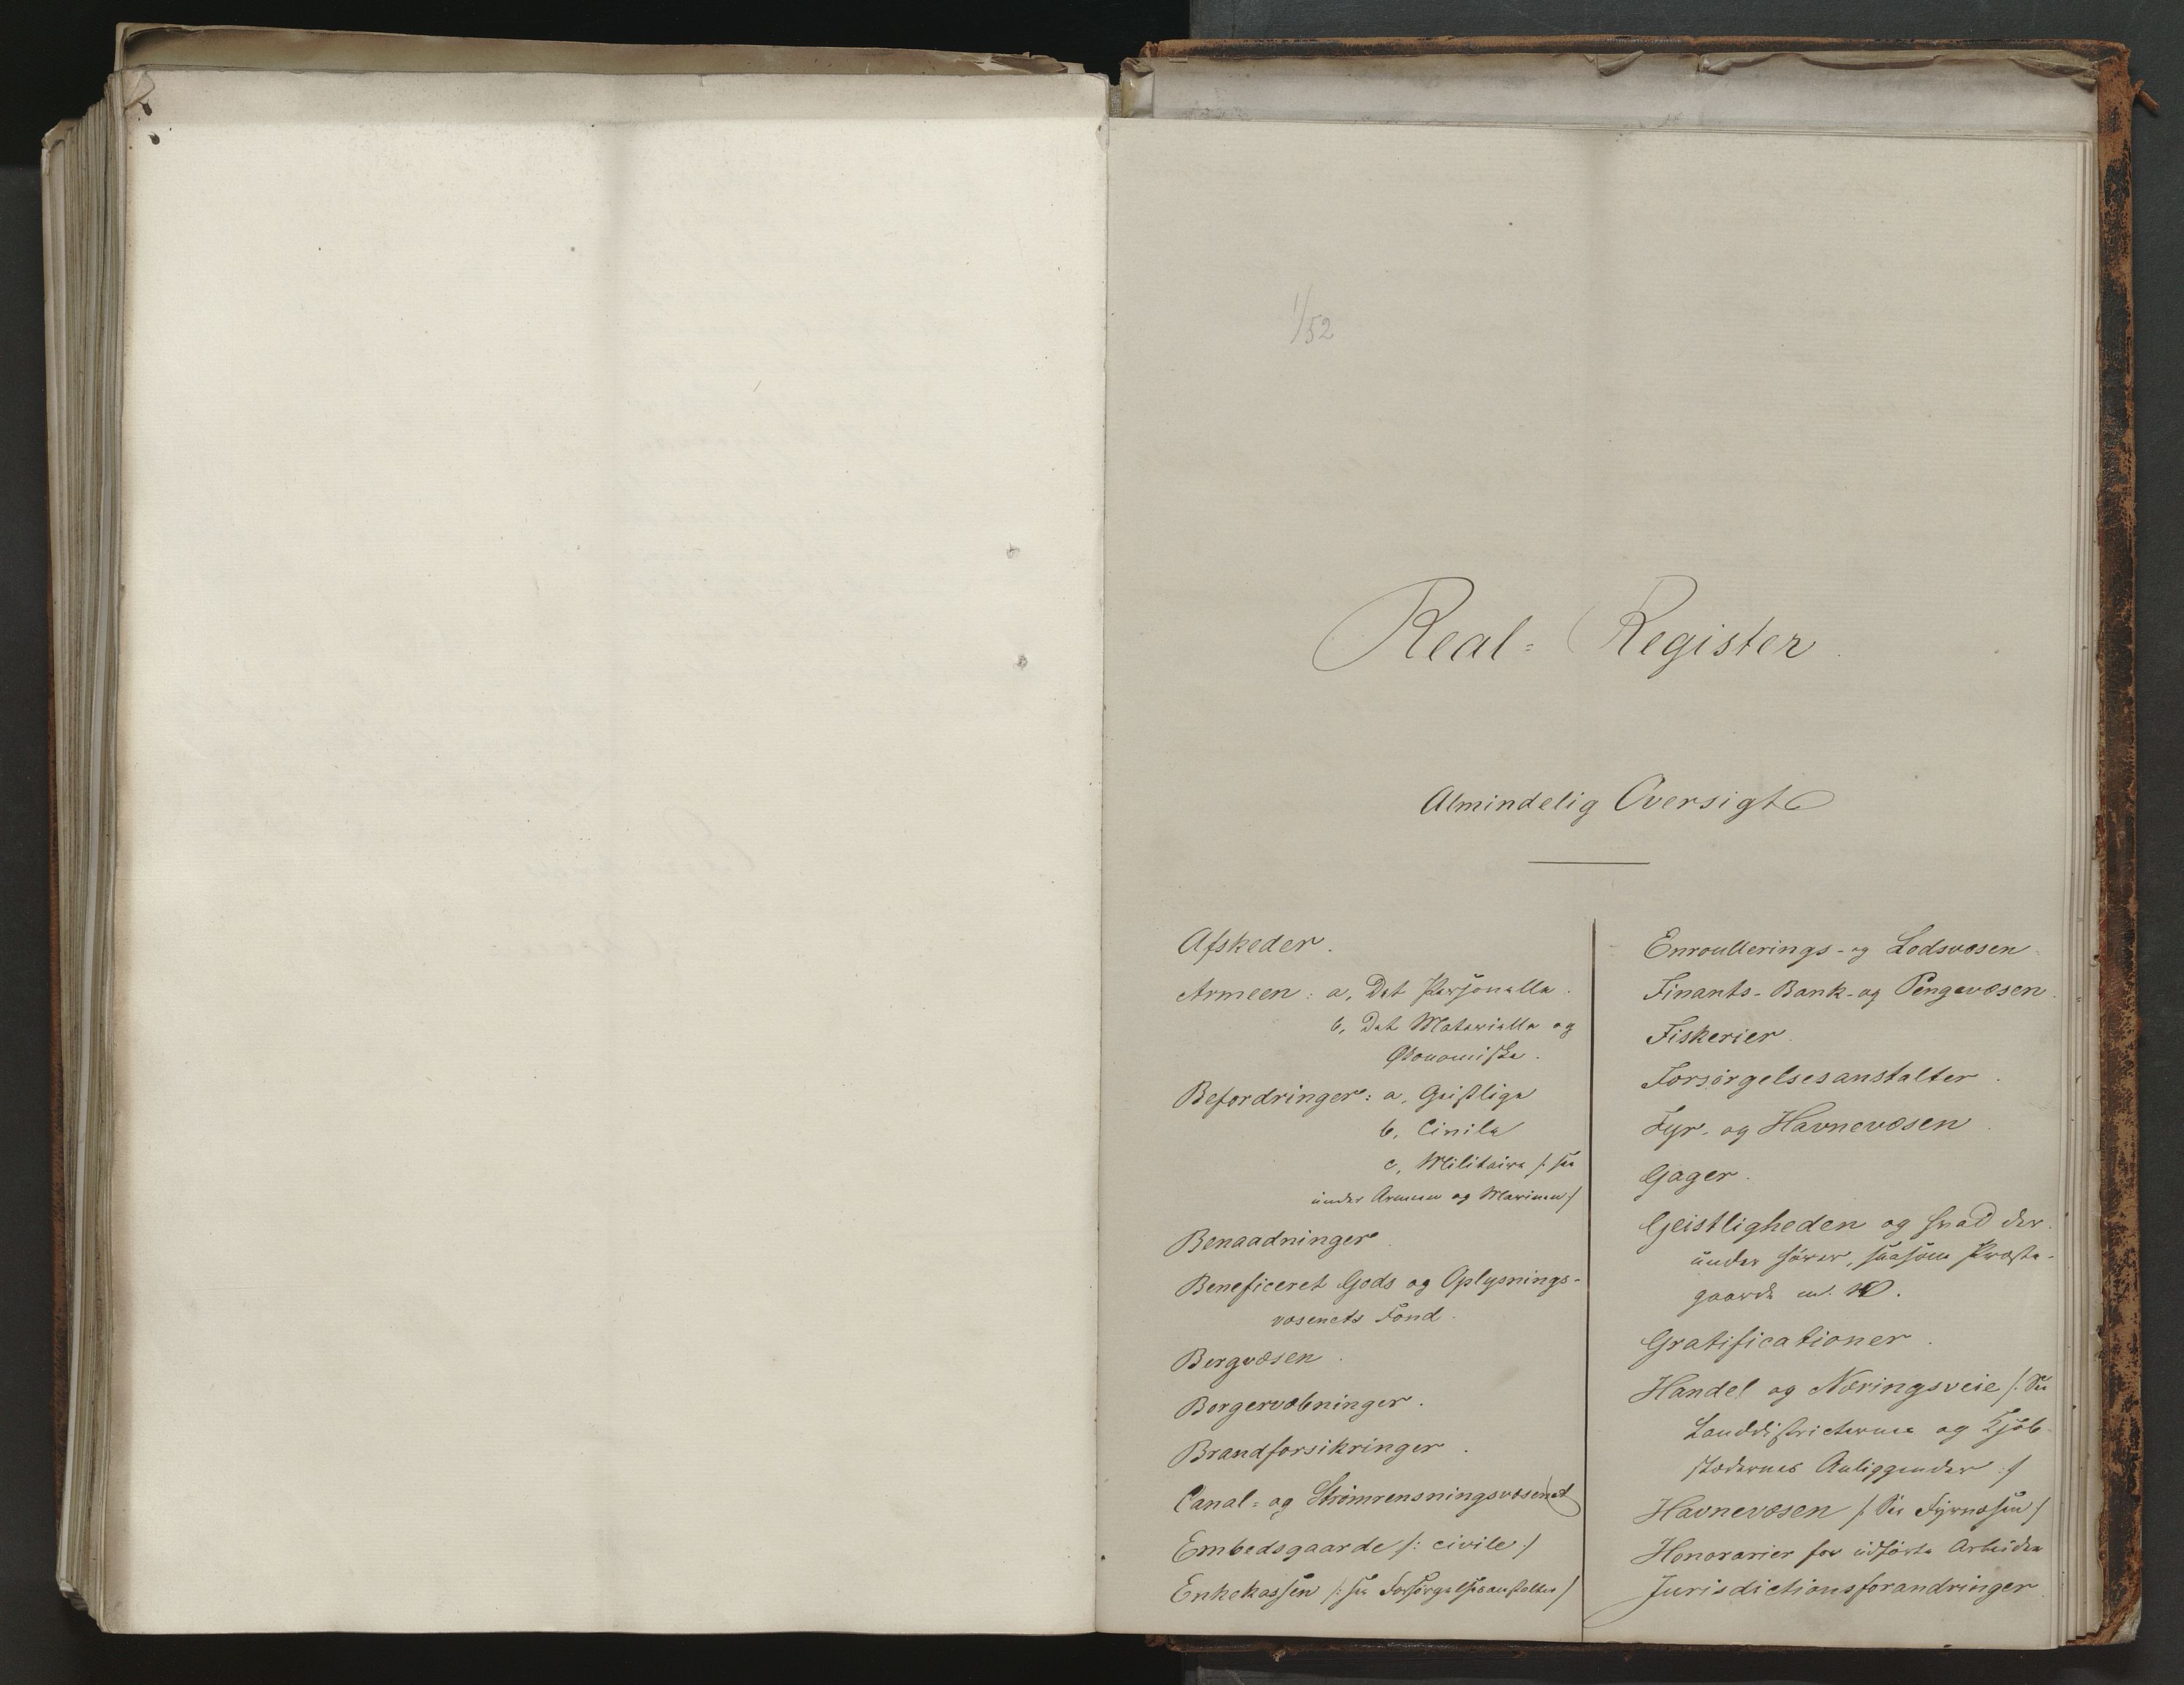 1/52
Real- Register.
Almindelig Oversigt
Afskeder.
Armeen: a, Det Personelle.
b, Det Materielle og
Økonomiske.
Befordringer: a, Geistlige
b, Civile
c, Militaire /: see
under Armeen og Marinen :/
Benaadninger.
Beneficeret Gods og Oplysnings-
væsenets Fond.
Bergvæsen.
Borgervæbninger.
Brandforsikringer.
Canal- og Strömrensningsvæsenet
Embedsgaarde /: civile :/
Enkekassen /: see Forsörgelsesanstalter :/
Enroullerings- og Lodsvæsen.
Finants- Bank- og Pengevæsen.
Fiskerier.
Forsörgelsesanstalter.
Fyr- og Havnevæsen.
Gager.
Geistligheden og hvad der-
under hörer, saasom Præste-
gaarde m. v.
Gratificationer.
Handel og Næringsveie /: See
Landdistricternes og Kjöb-
stædernes Anliggender :/
Havnevæsen /: See Fyrvæsen :/
Honorarier for udförte Arbeider
Jurisdictionsforandringer.